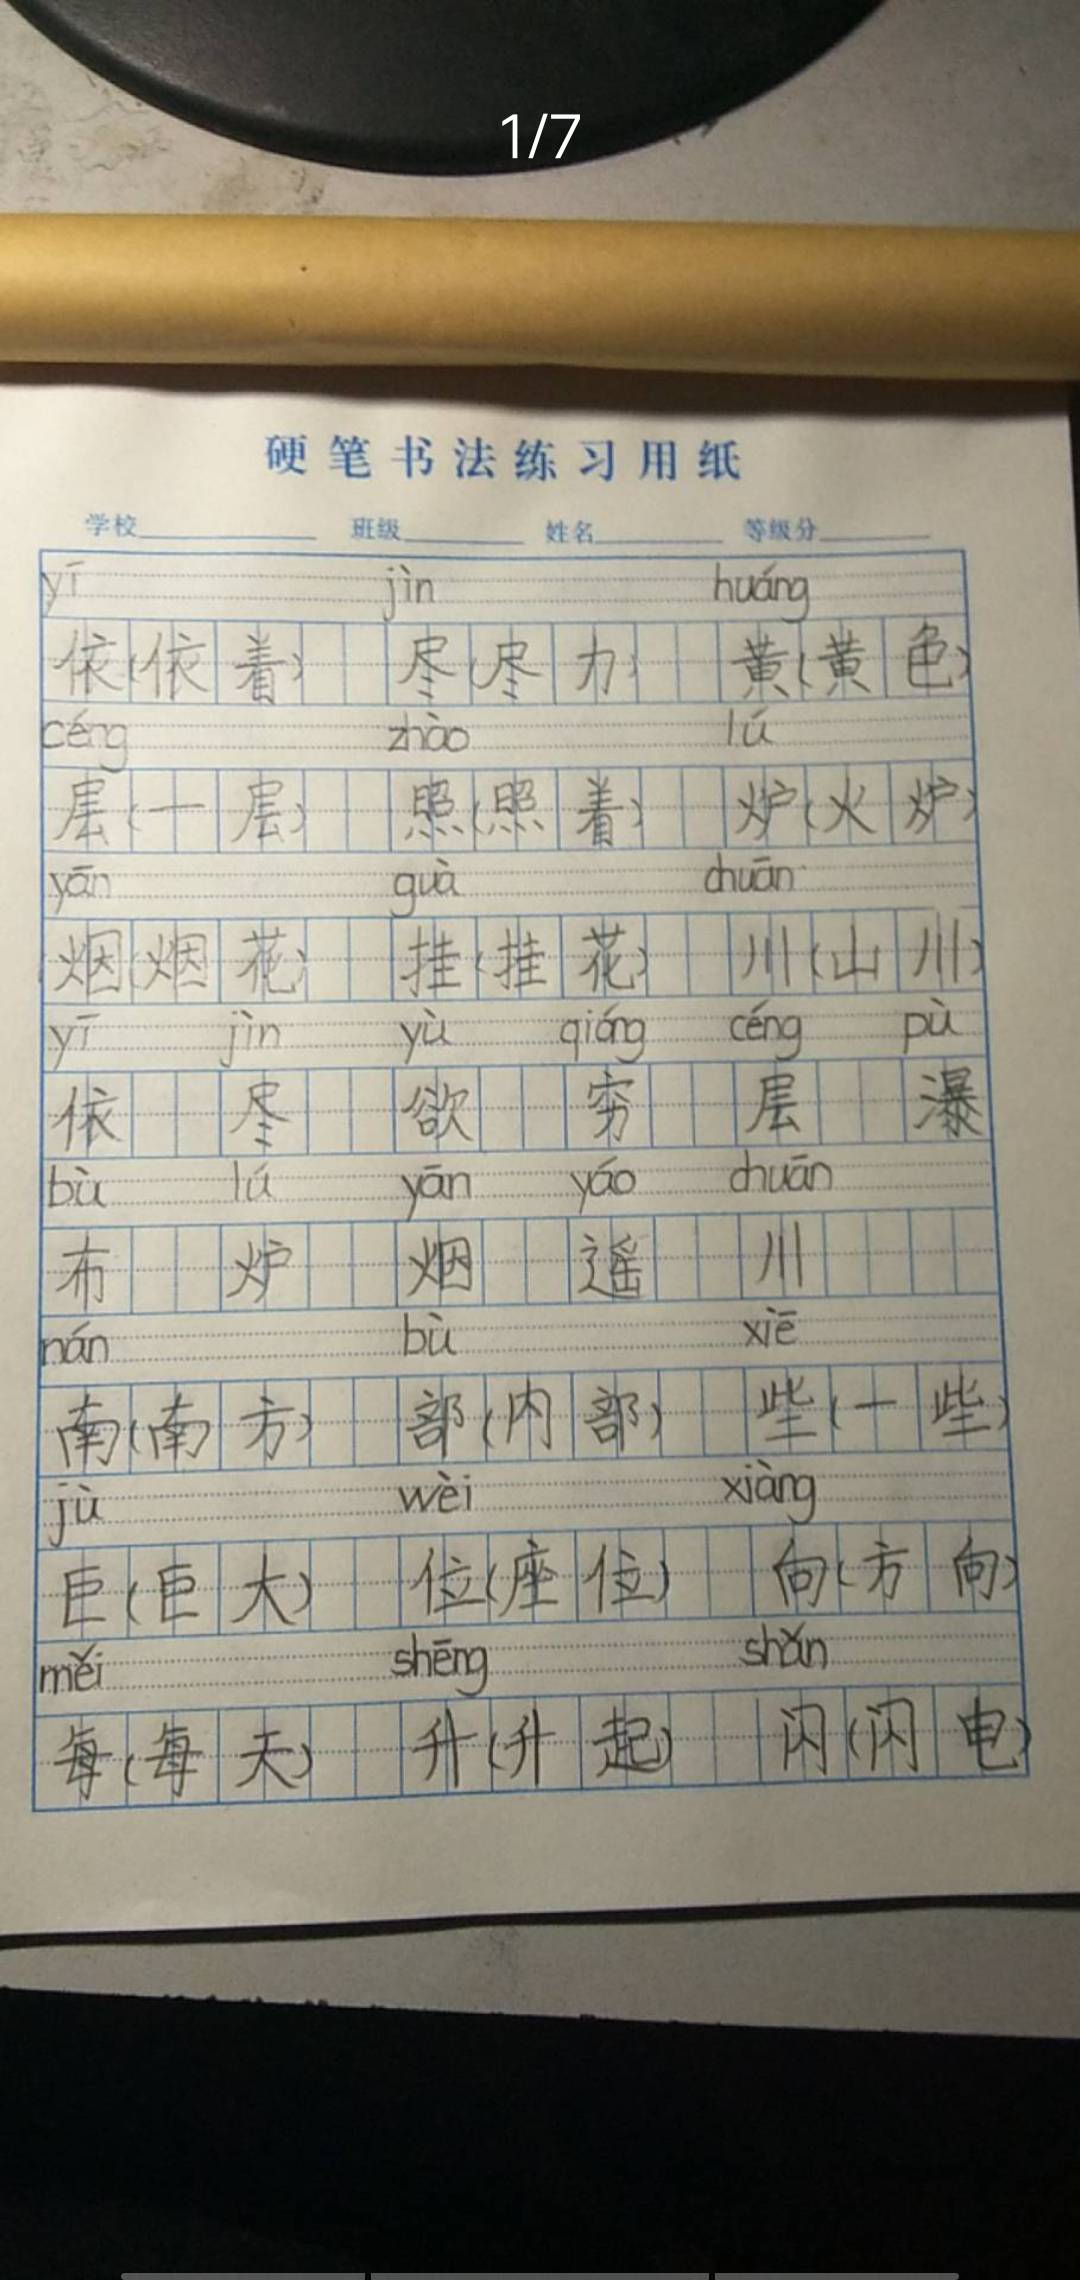 1/7
硬笔书法练习用纸
学校 班级 姓名 等级分
yī jìn huáng
依(依着) 尽(尽力) 黄(黄色)
céng zhào lú
层(一层) 照(照着) 炉(火炉)
yān guà chuān
烟(烟花) 挂(挂花) 川(山川)
yī jìn yù qióng céng pù
依 尽 欲 穷 层 瀑
bù lú yān yáo chuān
布 炉 烟 遥 川
nán bù xiē
南(南方) 部(内部) 些(一些)
jù wèi xiàng
巨(巨大) 位(座位) 向(方向)
měi shēng shǎn
每(每天) 升(升起) 闪(闪电)